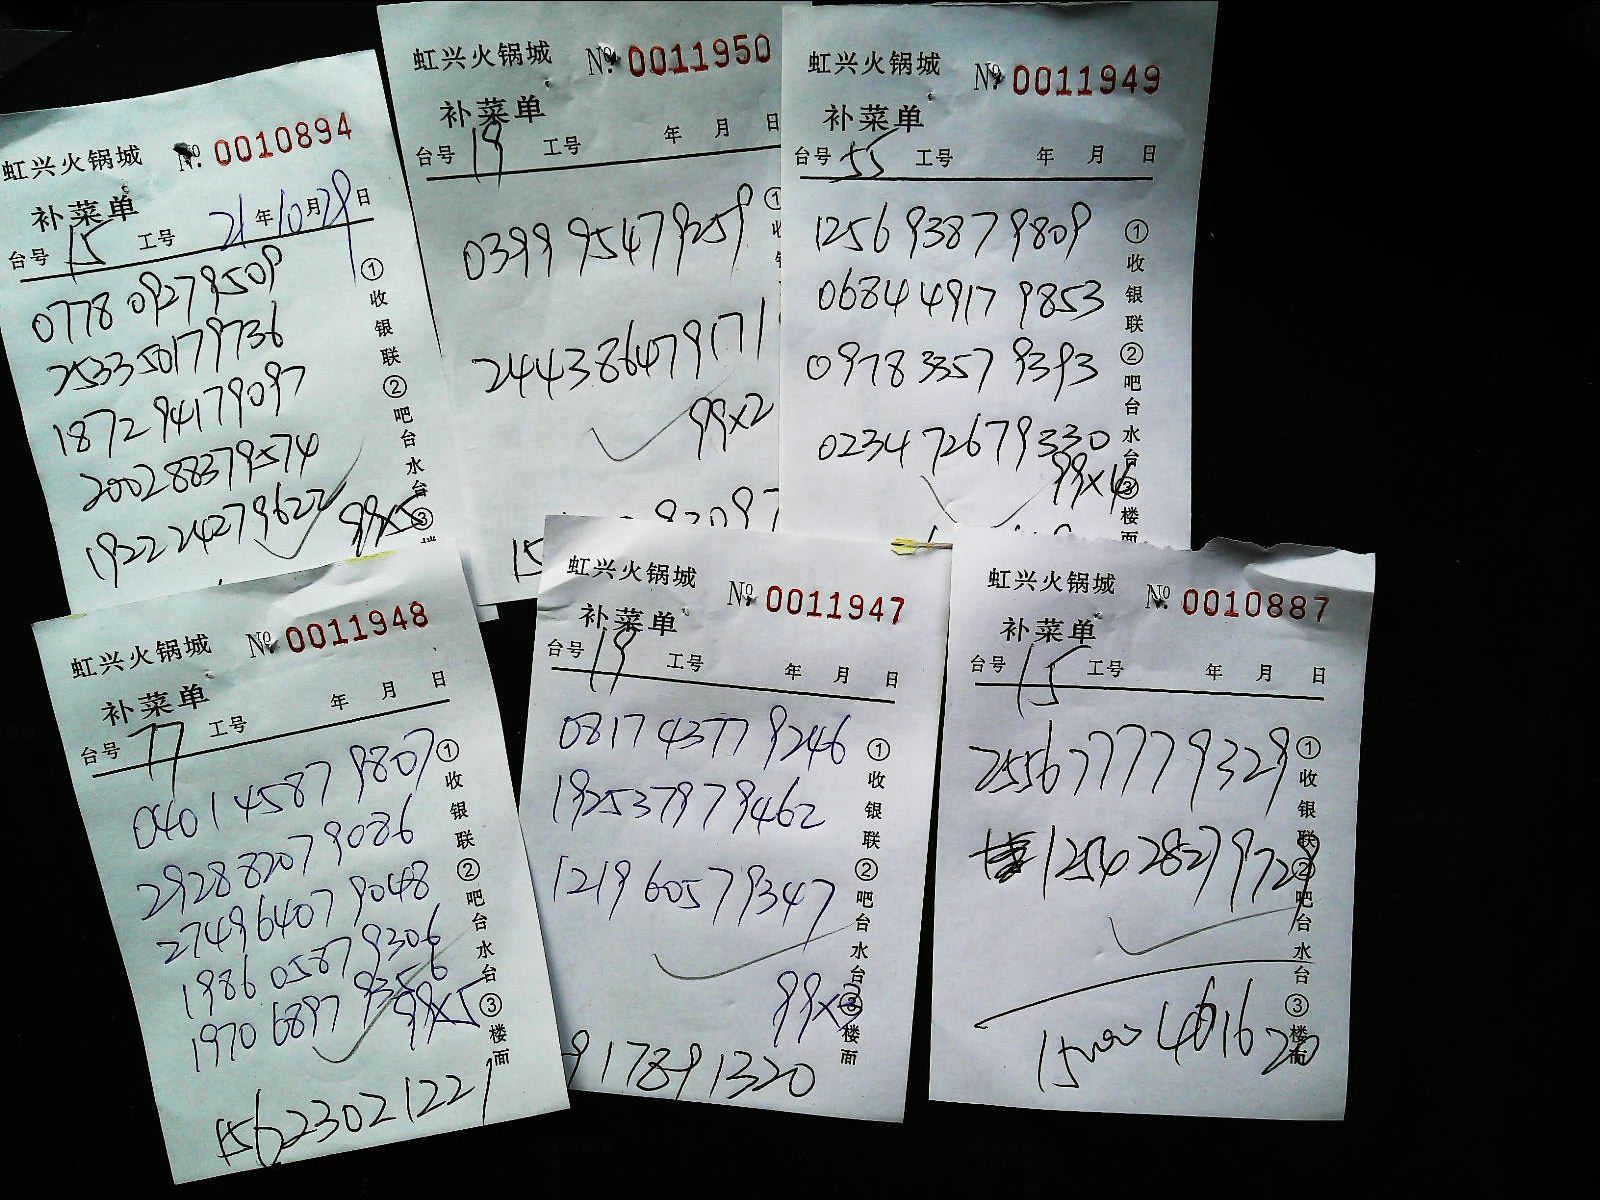 虹兴火锅城 №. 0010894
补菜单
台号 15 工号 21年10月29日
0778 0927 9509
2533 5017 9736
1872 9417 9097
2002 8837 9574
1922 2427 9622
99×5
①收银联②吧台水台③
虹兴火锅城 №. 0011950
补菜单
台号 19 工号 年 月 日
0399 9547 9259
2443 8647 9171
99×2
①收
虹兴火锅城 №. 0011949
补菜单
台号 55 工号 年 月 日
1256 9387 9809
0684 4917 9853
0978 3357 9393
0234 7267 9330
99×4
①收银联②吧台水台③楼面
虹兴火锅城 №. 0011948
补菜单
台号 77 工号 年 月 日
0401 4587 9807
2928 8207 9086
2749 6407 9048
1986 0587 9306
1970 6897 9356
99×5
15623021221
①收银联②吧台水台③楼面
虹兴火锅城 №. 0011947
补菜单
台号 19 工号 年 月 日
0817 4377 9246
1925 3797 9462
1219 6057 9347
99×3
917891320
①收银联②吧台水台③楼面
虹兴火锅城 №. 0010887
补菜单
台号 15 工号 年 月 日
2556 7777 9329
1254 2827 9729
①收银联②吧台水台③楼面